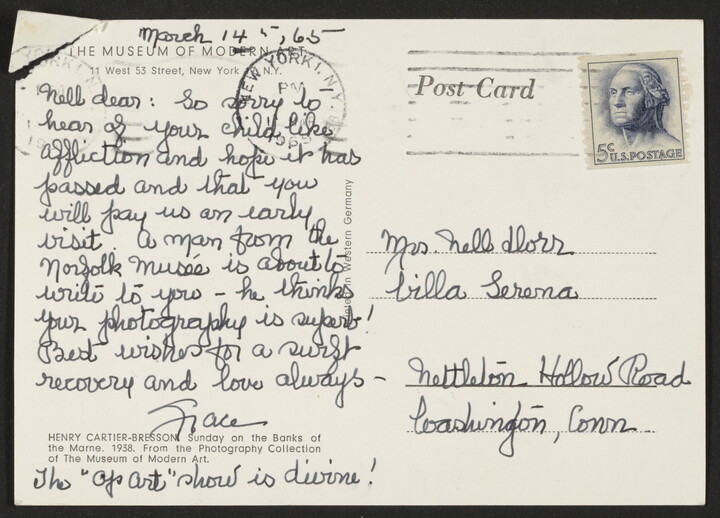 March 14th, 65
THE MUSEUM OF MODERN ART
11 West 53 Street, New York, N.Y.
Nell dear: So sorry to
hear of your child like
affliction and hope it has
passed and that you
will pay us an early
visit. A man from the
Norfolk Musée is about to
write to you – he thinks
your photography is superb!
Best wishes for a swift
recovery and love always –
Grace
HENRY CARTIER-BRESSON. Sunday on the Banks of
the Marne. 1938. From the Photography Collection
of The Museum of Modern Art.
The "Op Art" show is divine!
in Western Germany
NEW YORK 1, N.Y.
PM
1965
Post Card
5c U.S. POSTAGE
Mrs. Nell Dorr
Villa Serena
Nettleton Hollow Road
Washington, Conn